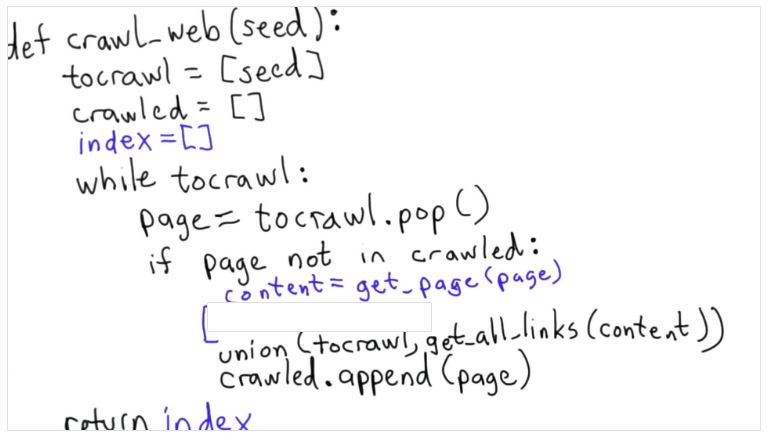 def crawl_web(seed):
tocrawl = [seed]
crawled = []
index = []
while tocrawl:
page = tocrawl.pop()
if page not in crawled:
content = get_page(page)
[
union(tocrawl, get_all_links(content))
crawled.append(page)
return index